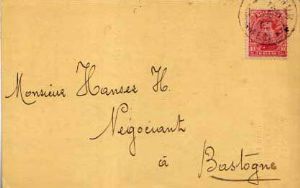 Monsieur Hanses H.
Négociant
à
Bastogne